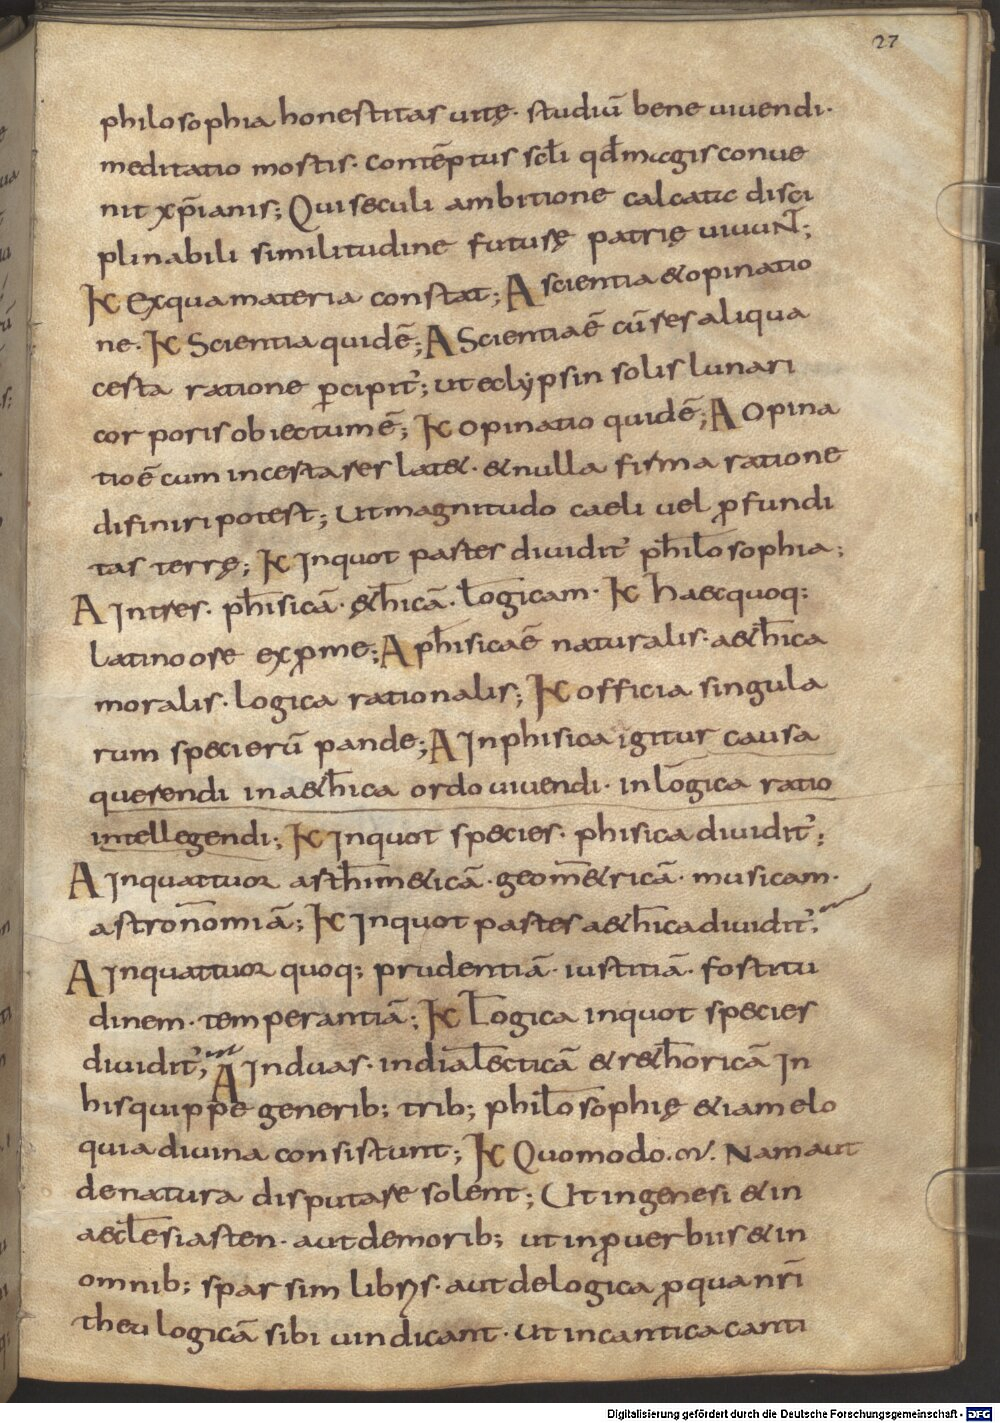 27
philosophia honestitas uitę· studiū bene uiuendi·
meditatio mortis· contēptus scl̄i qd̄ magis conue
nit xp̄ianis; Qui seculi ambitione calcata disci
plinabili similitudine futurę patrię uiuuN̄T;
K Ex qua materia constat; A scientia & opinatio
ne· K Scientia quid ē; A Scientia ē cū res aliqua
certa ratione p̄cipit̄; ut eclypsin solis lunari
corporis obiectum ē; K Opinatio quid ē; A Opina
tio ē cum incerta res lat&· & nulla firma ratione
difiniri potest; Ut magnitudo caeli uel ꝓfundi
tas terrę; K Inquot partes diuidit̄ philosophia;
A Intres· phisicā· &hicā· logicam· K haec quoq;
latino ore exprome; A phisica ē naturalis· a&hica
moralis· logica rationalis; K officia singula
rum specierū pande; A In phisica igitur causa
querendi in a&hica ordo uiuendi· in logica ratio
intellegendi; K Inquot species· phisica diuidit̄;
A Inquattuor arthim&icā· geom&ricā· musicam·
astronomiā; K Inquot partes a&hica diuidit̄;
A Inquattuor quoq; prudentiā· iustitiā· fortitu
dinem· temperantiā; K Logica inquot species
diuidit̄; A Induas· in dialecticā & r&horicā In
his quippe generib; trib; philosophię &iam elo
quia diuina consistunt; K Quomodo· Nam aut
de natura disputare solent; Ut in genesi & in
aeclesiasten· aut de morib; ut in ꝓuerbiis & in
omnib; sparsim libris· aut de logica ꝓ qua nr̄i
theulogicā sibi uindicant· ut in cantica canti
Digitalisierung gefördert durch die Deutsche Forschungsgemeinschaft - DFG